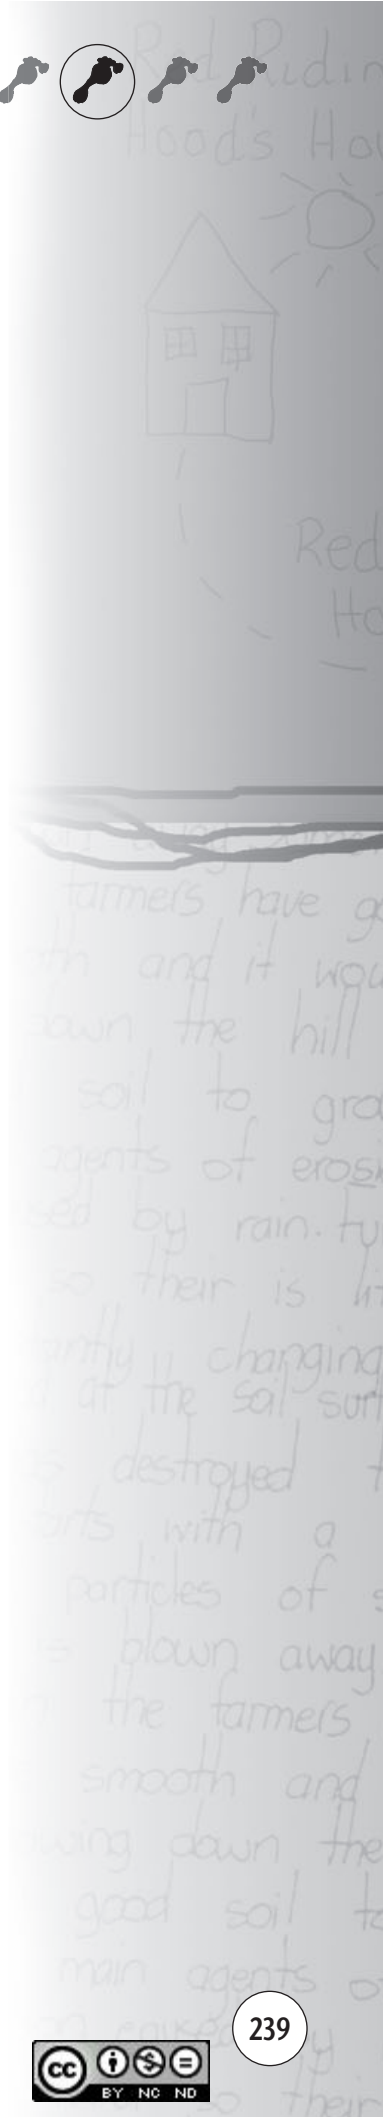 Red Ridin
Hood's Ho
Red
Ho
farmers have g
and it wou
down the hill
soil to gro
agents of erosi
by rain. tu
so their is lit
changing
at the soil surf
destroyed t
with a
particles of s
blown away
the farmers
smooth and
down the
good soil to
main agents o
239
cc
BY NC ND
so their